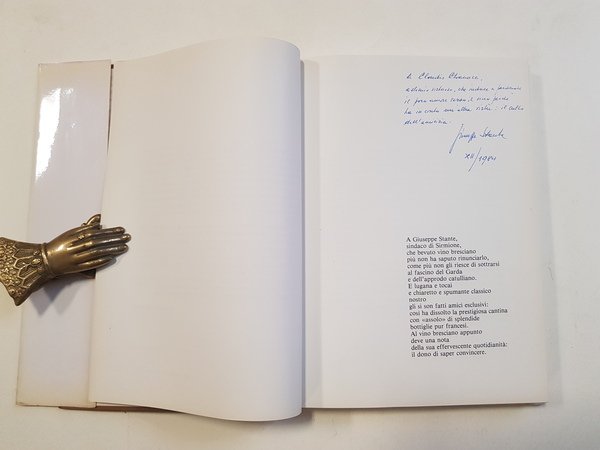 a Claudio
che
il
ha in un'altra : il culto
dell'amicizia.
Giuseppe Stante
XII/1984
A Giuseppe Stante,
sindaco di Sirmione,
che bevuto vino bresciano
più non ha saputo rinunciarlo,
come più non gli riesce di sottrarsi
al fascino del Garda
e dell'approdo catulliano.
E lugana e tocai
e chiaretto e spumante classico
nostro
gli si son fatti amici esclusivi:
così ha dissolto la prestigiosa cantina
con «assolo» di splendide
bottiglie pur francesi.
Al vino bresciano appunto
deve una nota
della sua effervescente quotidianità:
il dono di saper convincere.